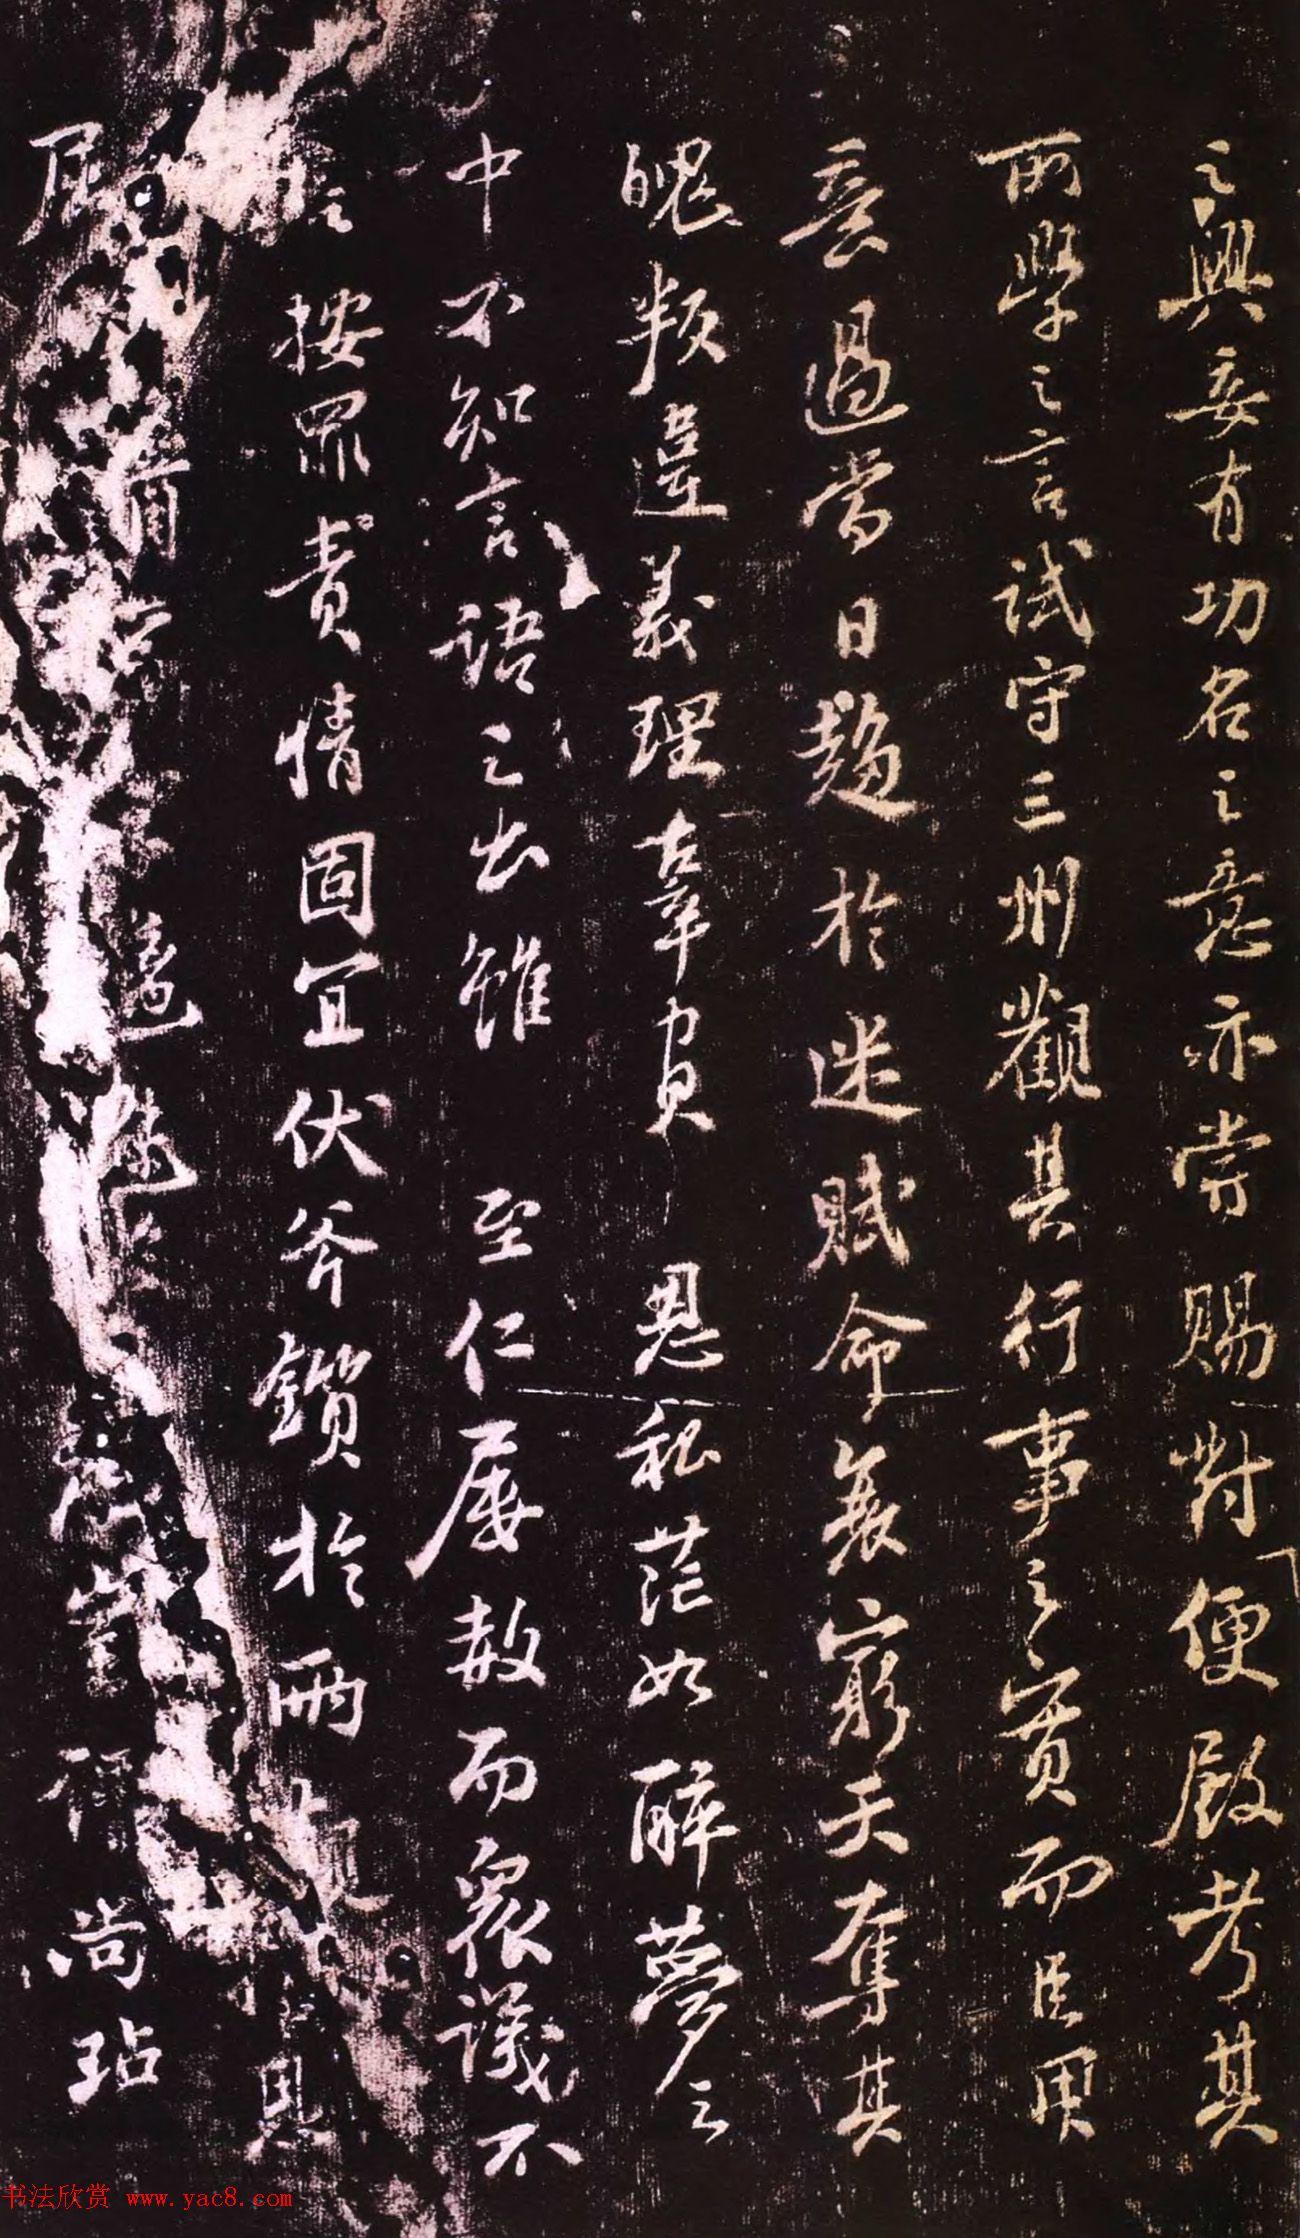 之興妄有功名之意亦嘗賜對便殿考其
所學之言試守三州觀其行事之實而臣用
意過當日趨於迷賦命衰窮天奪其
魄叛違義理辜負恩私茫如醉夢之
中不知言語之出雖至仁屢赦而衆議不
按罪責情固宜伏斧鑕於兩觀恩
屈膺尚玷
书法欣赏 www.yac8.com